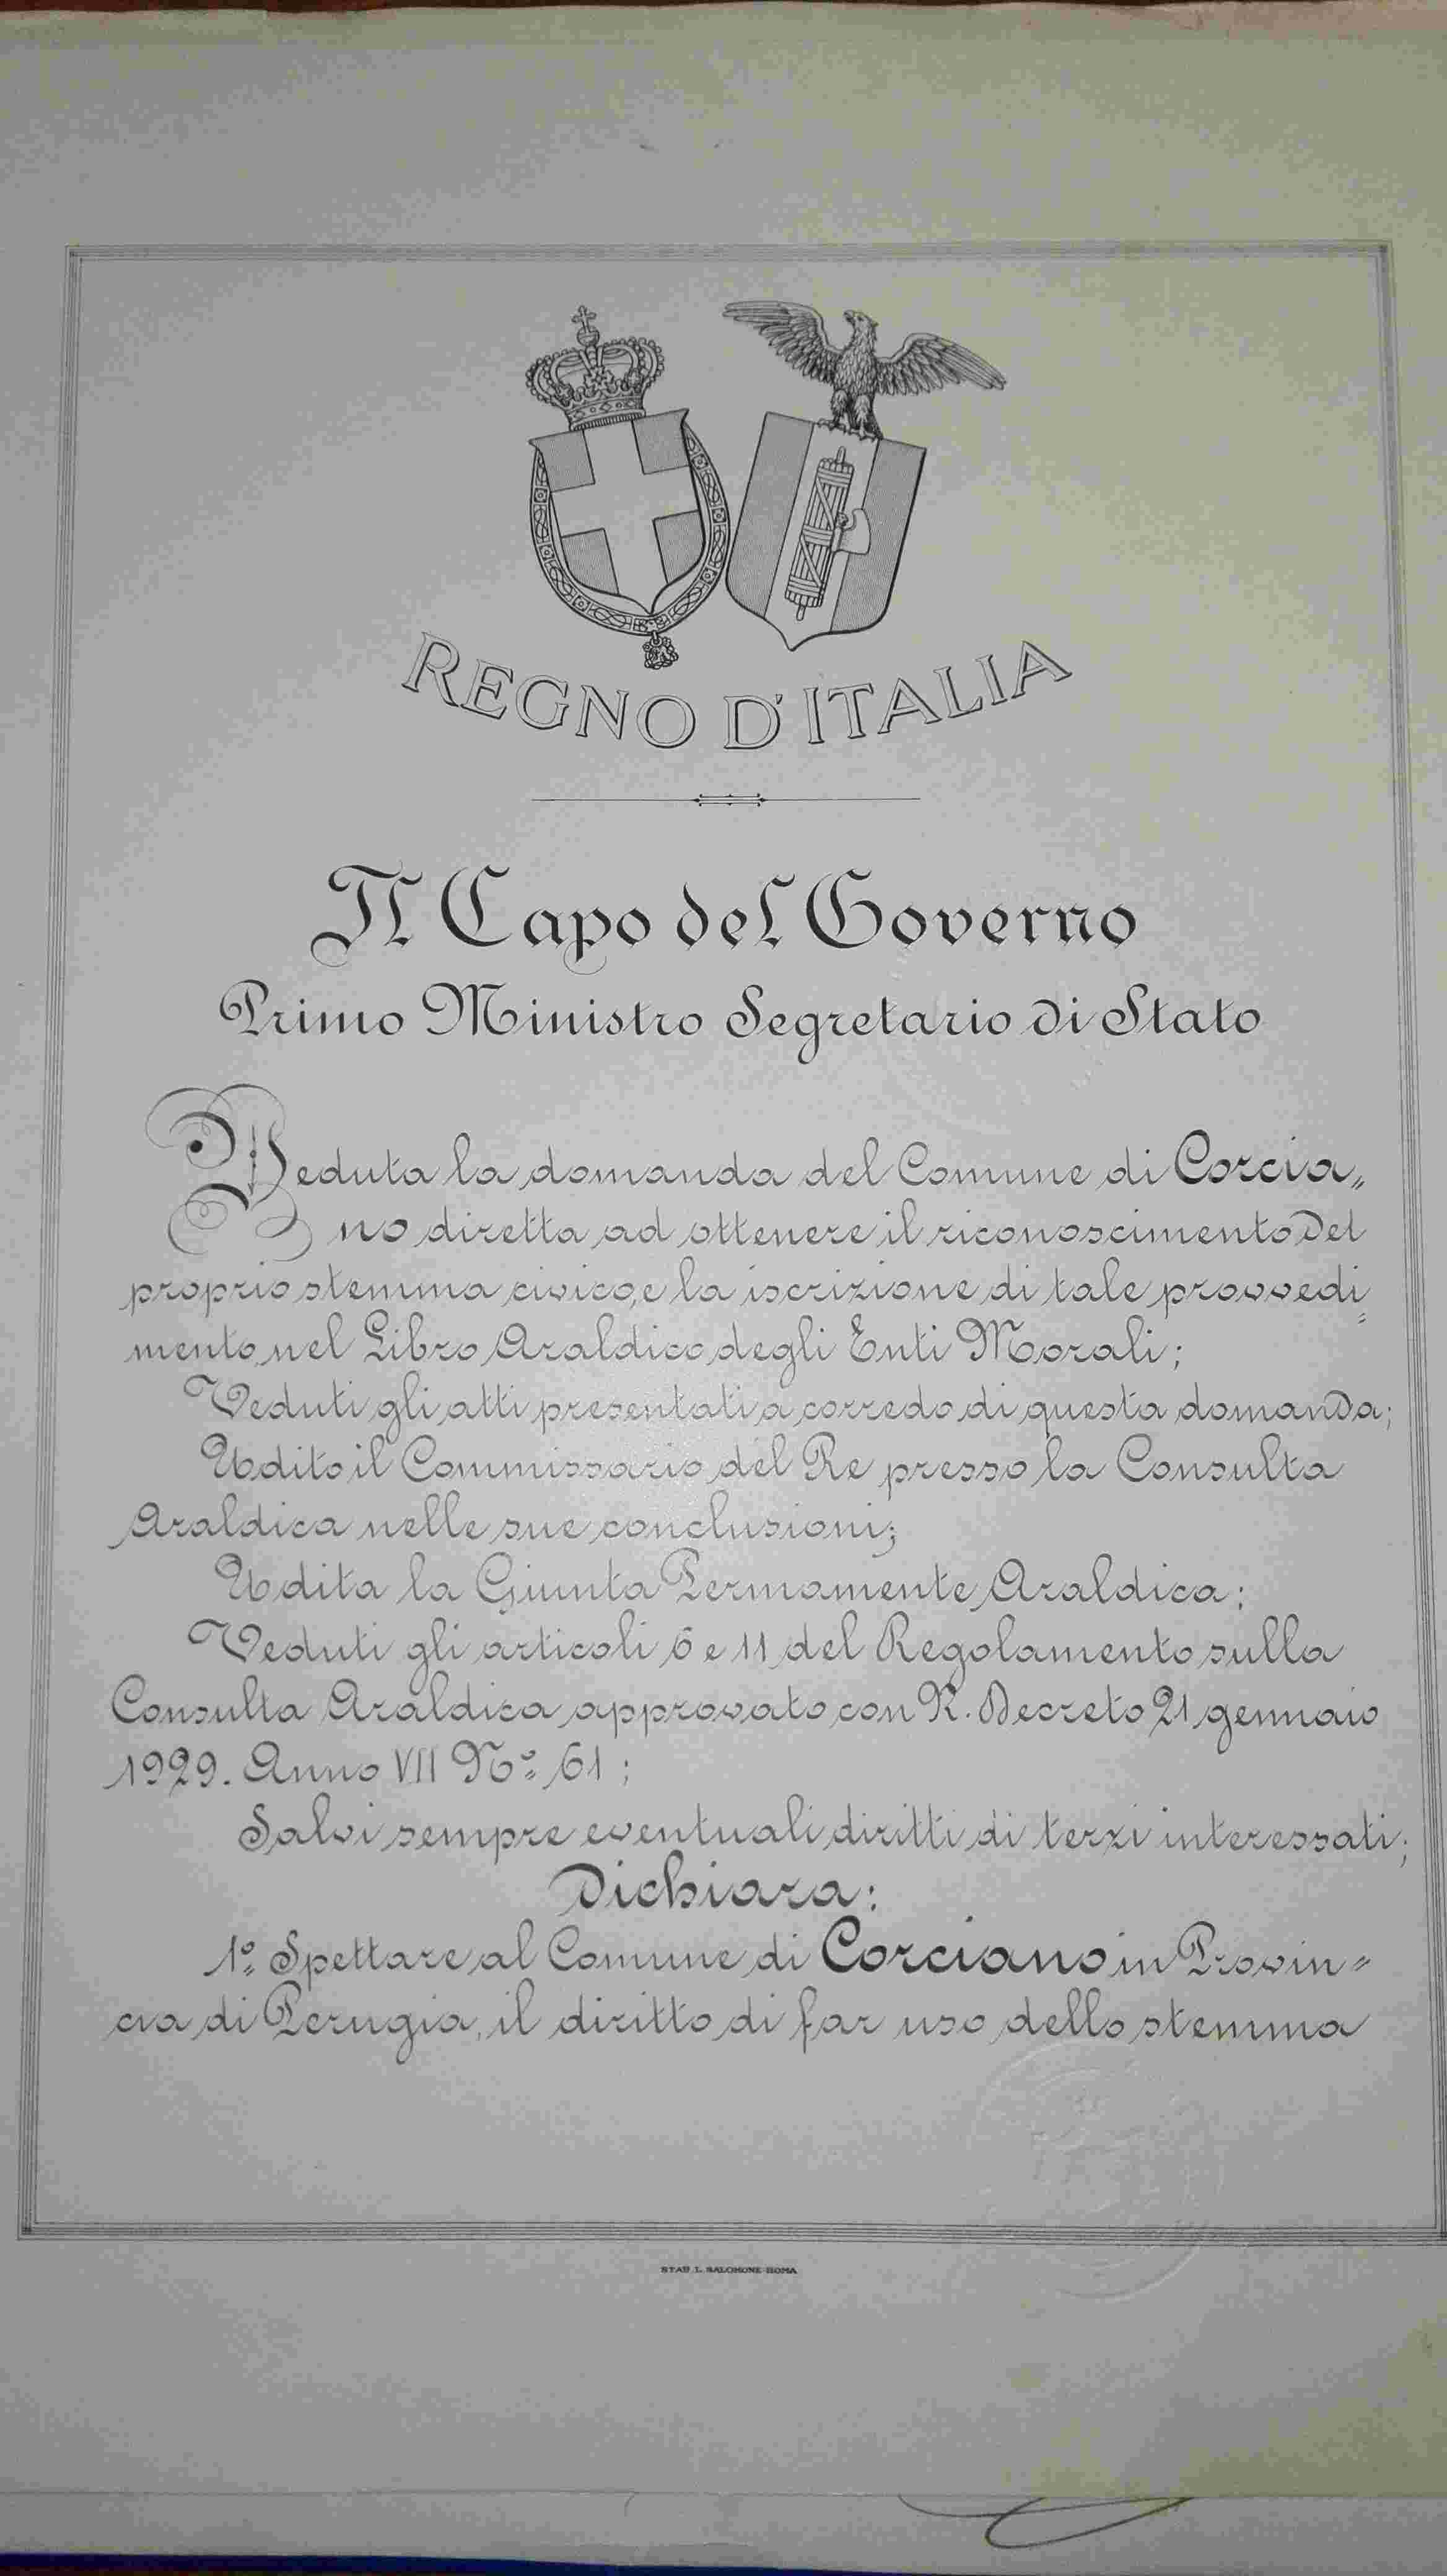 REGNO D'ITALIA
Il Capo del Governo
Primo Ministro Segretario di Stato
Veduta la domanda del Comune di Corcia„
no diretta ad ottenere il riconoscimento del
proprio stemma civico, e la iscrizione di tale provvedi=
mento, nel Libro Araldico degli Enti Morali;
Veduti gli atti presentati a corredo di questa domanda;
Udito il Commissario del Re presso la Consulta
Araldica nelle sue conclusioni;
Udita la Giunta Permamente Araldica;
Veduti gli articoli 6 e 11 del Regolamento sulla
Consulta Araldica approvato con R. Decreto 21 gennaio
1929. Anno VII Nº 61;
Salvi sempre eventuali diritti di terzi interessati;
Dichiara:
1º Spettare al Comune di Corciano in Provin=
cia di Perugia, il diritto di far uso dello stemma
STAB. L. SALOMONE ROMA